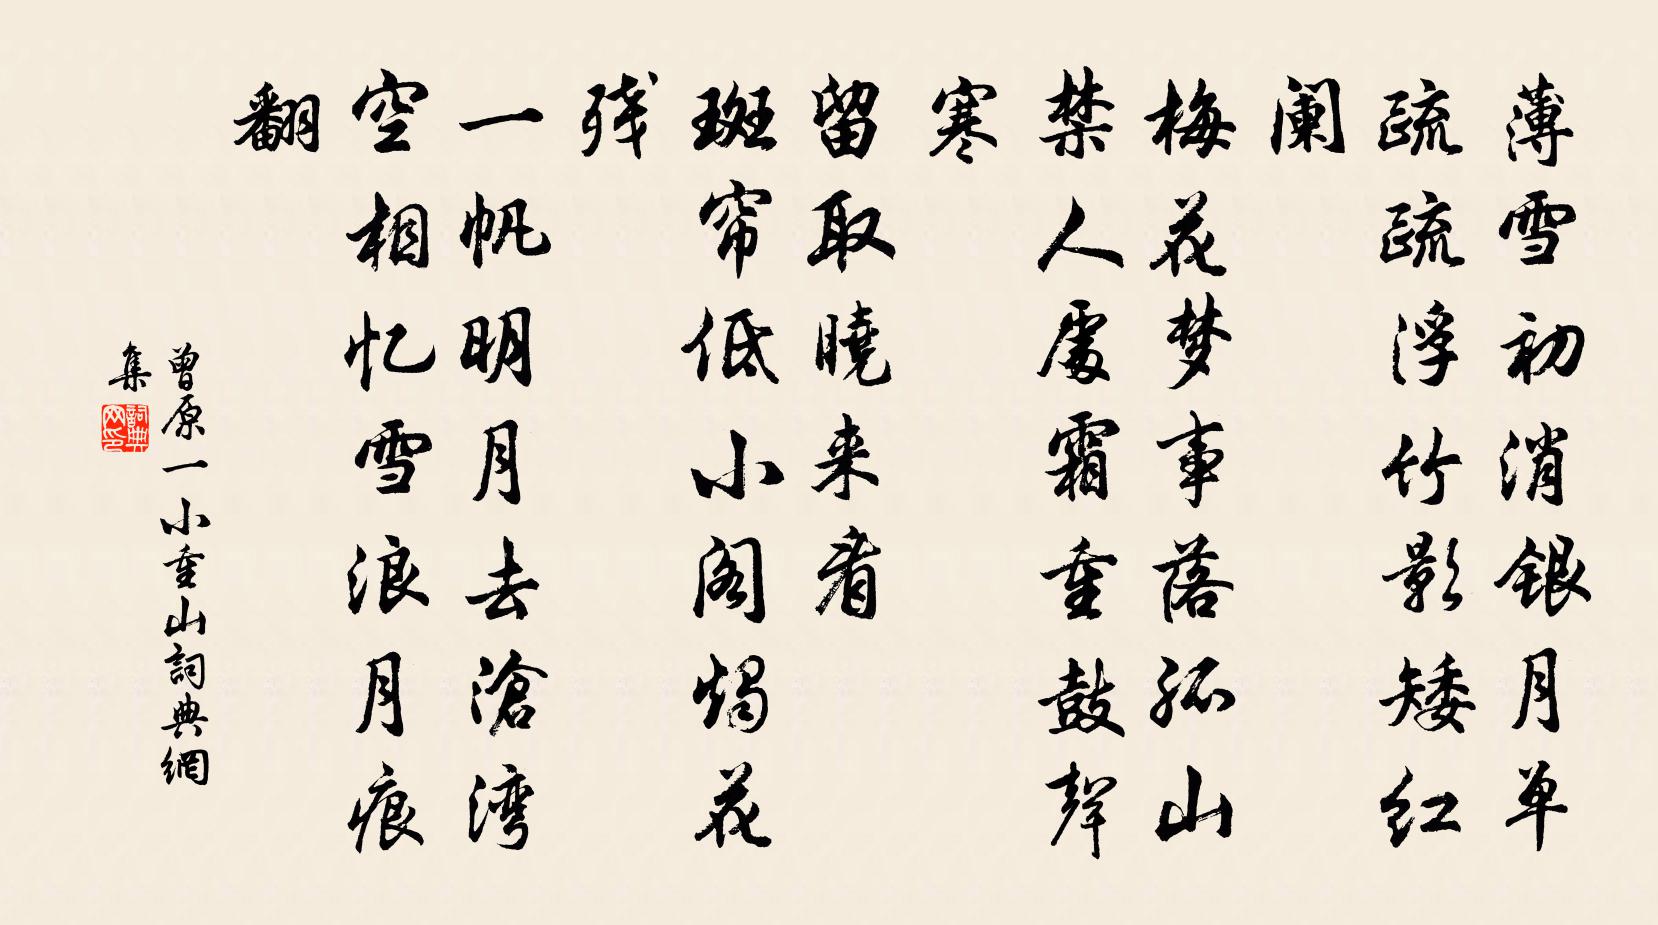 薄雪初消银月单
疏疏浮竹影矮红
阑
梅花梦事落孤山
禁人处霜重鼓声
寒
留取晓来看
斑帘低小阁烛花
残
一帆明月去沧湾
空相忆雪浪月痕
翻
曾原一小重山詞典網
集
詞典
网印